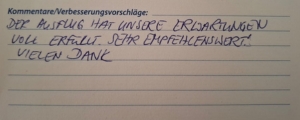 Kommentare/Verbesserungsvorschläge:
DER AUSFLUG HAT UNSERE ERWARTUNGEN
VOLL ERFÜLLT. SEHR EMPFEHLENSWERT!
VIELEN DANK